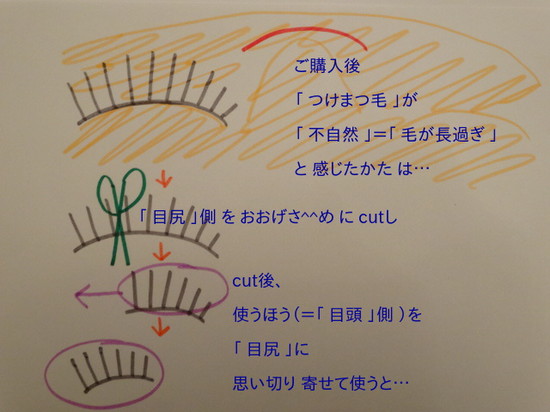 ご購入後
「 つけまつ毛 」が
「 不自然 」＝「 毛が長過ぎ 」
と 感じたかた は…
「 目尻 」側 を おおげさ^^め に cutし
cut後、
使うほう（＝「 目頭 」側 ）を
「 目尻 」に
思い切り 寄せて使うと…